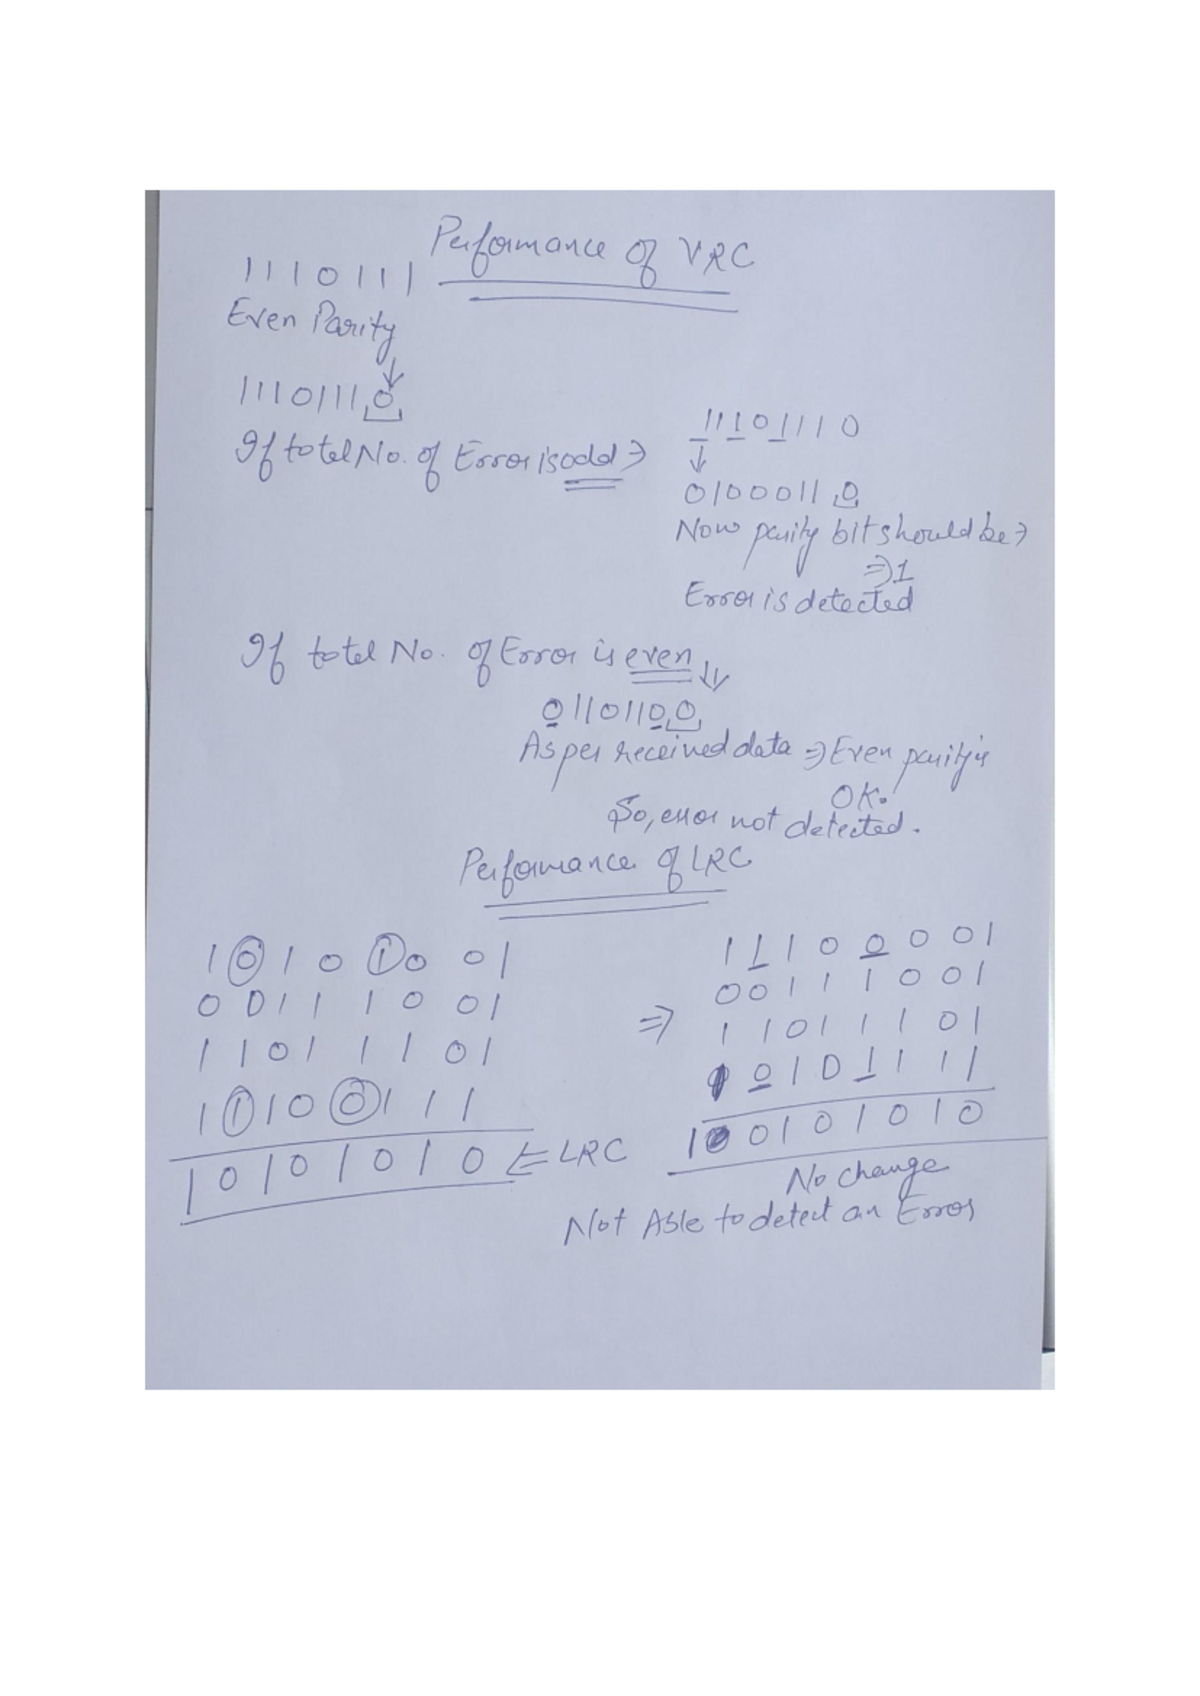 Performance of VRC
1110111
Even Parity
11101110
If total No. of Error is odd ⇒
11101110
01000110
Now parity bit should be ⇒
⇒ 1
Error is detected
If total No. of Error is even
01101100
As per received data ⇒ Even parity is
OK.
So, error not detected.
Performance of LRC
1 0 1 0 1 0 0 1
0 0 1 1 1 0 0 1
1 1 0 1 1 1 0 1
1 1 1 0 0 1 1 1
1 0 1 0 1 0 1 0 ⇐ LRC
⇒
1 1 1 0 0 0 0 1
0 0 1 1 1 0 0 1
1 1 0 1 1 1 0 1
1 0 1 0 1 1 1 1
1 0 1 0 1 0 1 0
No change
Not Able to detect an Error